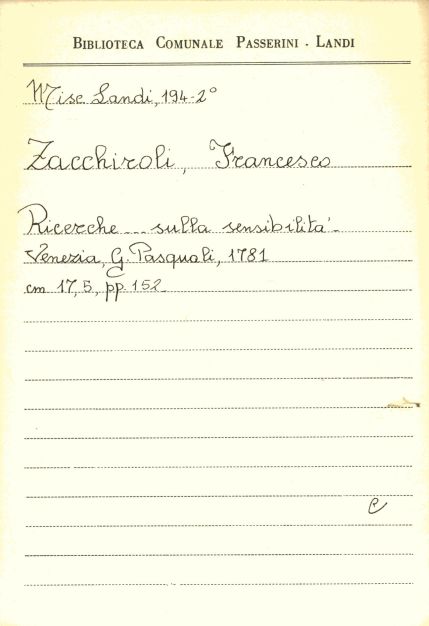 BIBLIOTECA COMUNALE PASSERINI - LANDI
Misc Landi, 194-2°
Zacchiroli, Francesco
Ricerche ... sulla sensibilità -
Venezia, G. Pasquali, 1781
cm 17,5, pp. 152
e